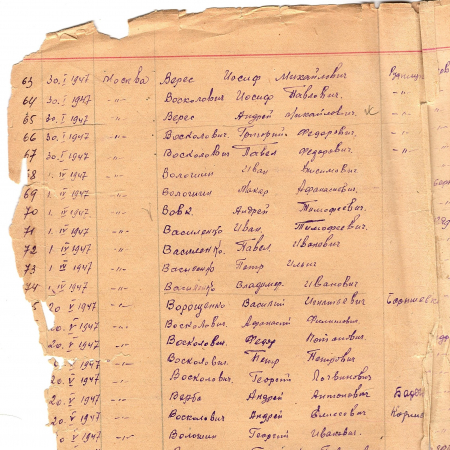 63 30. I 1947 Москва Верес Иосиф Михайлович
64 30. I 1947 -"- Восколович Иосиф Павлович.
65 30. I 1947 -"- Верес Андрей Михайлович.
66 30. I 1947 -"- Восколович. Григорий Федорович.
67 30. I 1947 -"- Восколович Павел Федорович.
68 1. IV 1947 -"- Волошин Иван
69 1. IV 1947 -"- Волошин Макар Афанасьевич.
70 1. IV 1947 -"- Вовк. Андрей Тимофеевич.
71 1. IV 1947 -"- Василенко Иван Тимофеевич.
72 1. IV 1947 -"- Василенко. Павел Иванович
73 1. IV 1947 -"- Василенко Петр Ильич
74 1. IV 1947 -"- Василенко Владимир Иванович
5 20. V 1947 -"- Ворощенко Василий Игнатьевич
20. V 1947 -"- Восколович. Афанасий Филиппович.
20. V 1947 -"- Восколович. Федор Потапович.
V 1947 -"- Восколович. Петр Петрович
20. V 1947 -"- Восколович. Георгий Логвинович
20. V 1947 -"- Верба Андрей Антонович
20. V 1947 -"- Восколович Андрей Елисеевич
0 V 1947 -"- Волошин Георгий Иванович.